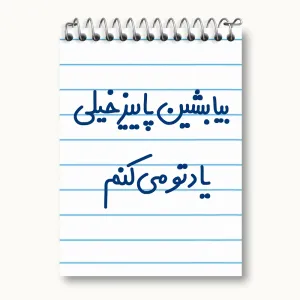 بیا بشین پاییز خیلی
یادتو می کنم